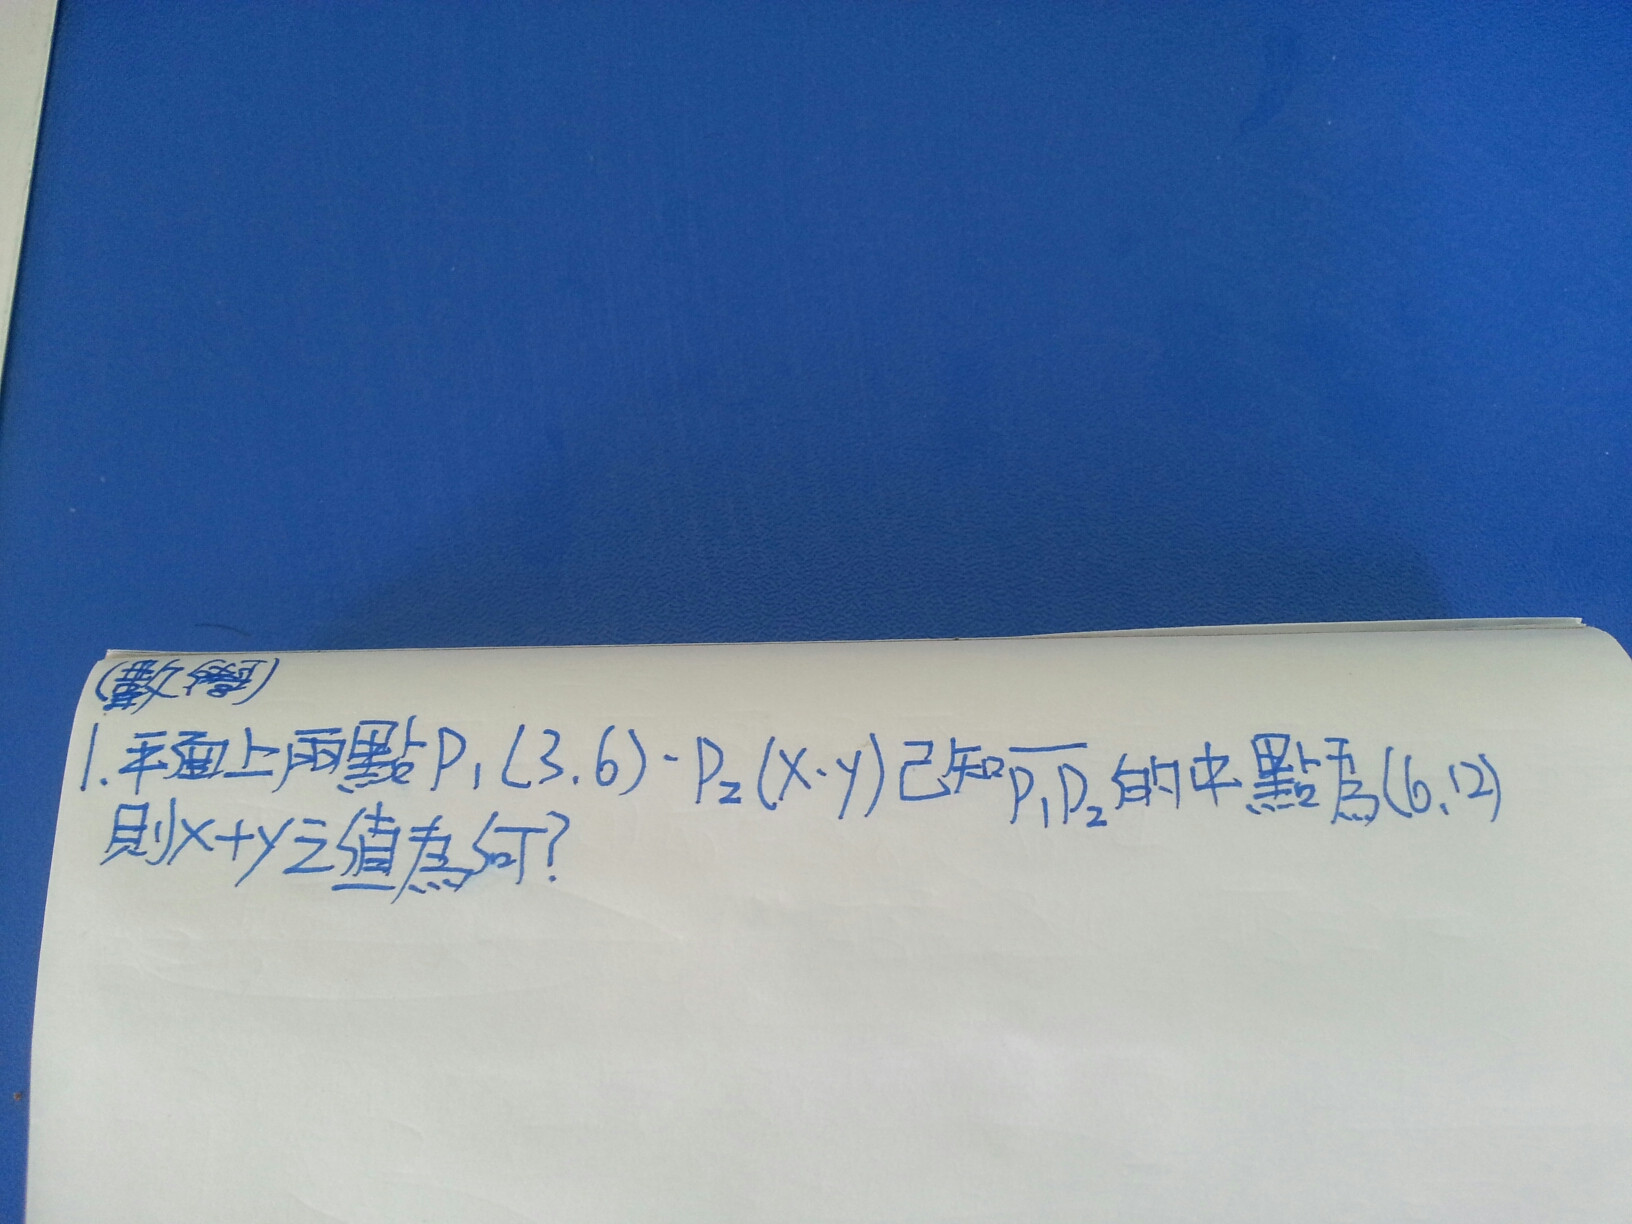 (數學)
1.平面上兩點P₁(3.6)、P₂(x.y)已知P₁P₂的中點為(6.12)
則x+y之值為何?